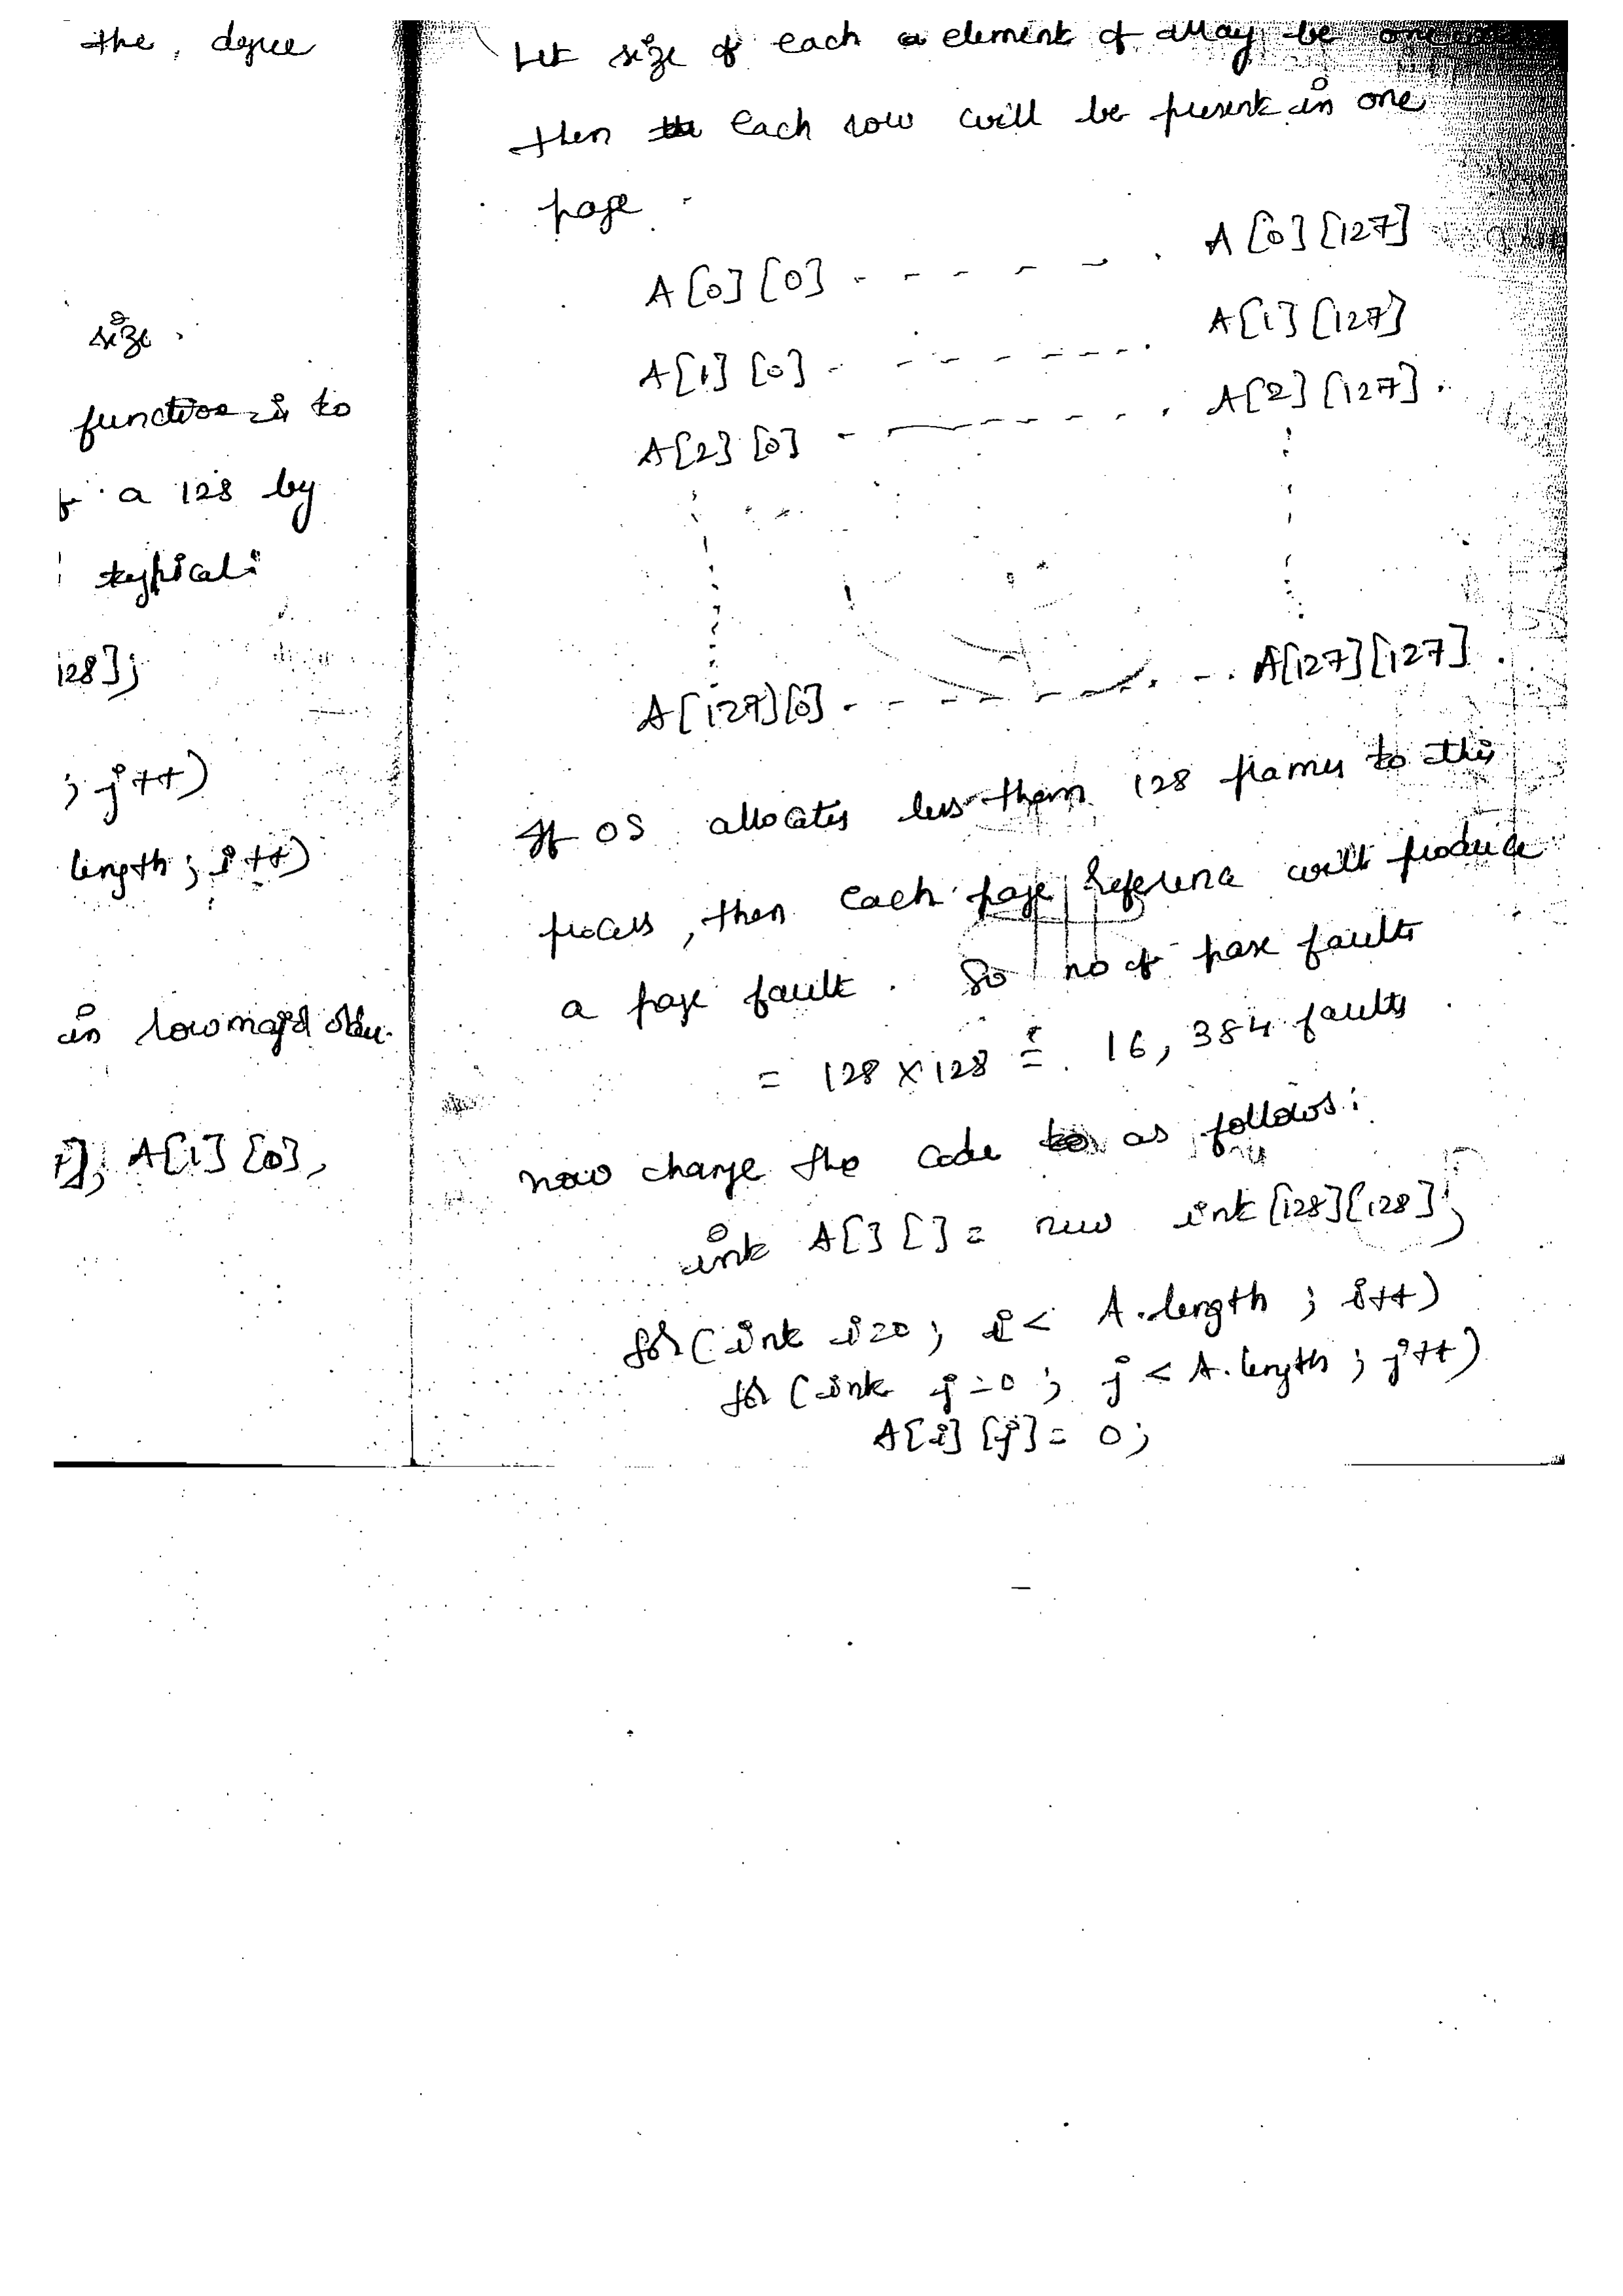 the, degree
size.
function is to
a 128 by
typical:
128];
; j++)
length; i++)
in rowmajor order.
], A[1][0],
Let size of each element of array be one
then each row will be present in one
page.
A[0][0] - - - - - - . A[0][127]
A[1][0] - - - - - - - . A[1][127]
A[2][0] - - - - - - . A[2][127].
A[127][0] - - - - - - . - . . A[127][127].
If OS allocates less than 128 frames to this
process, then each page reference will produce
a page fault. So no of page faults
= 128 × 128 = 16,384 faults.
now change the code as follows:
int A[][] = new int[128][128];
for(int i=0; i< A.length; i++)
for(int j=0; j< A.length; j++)
A[i][j] = 0;